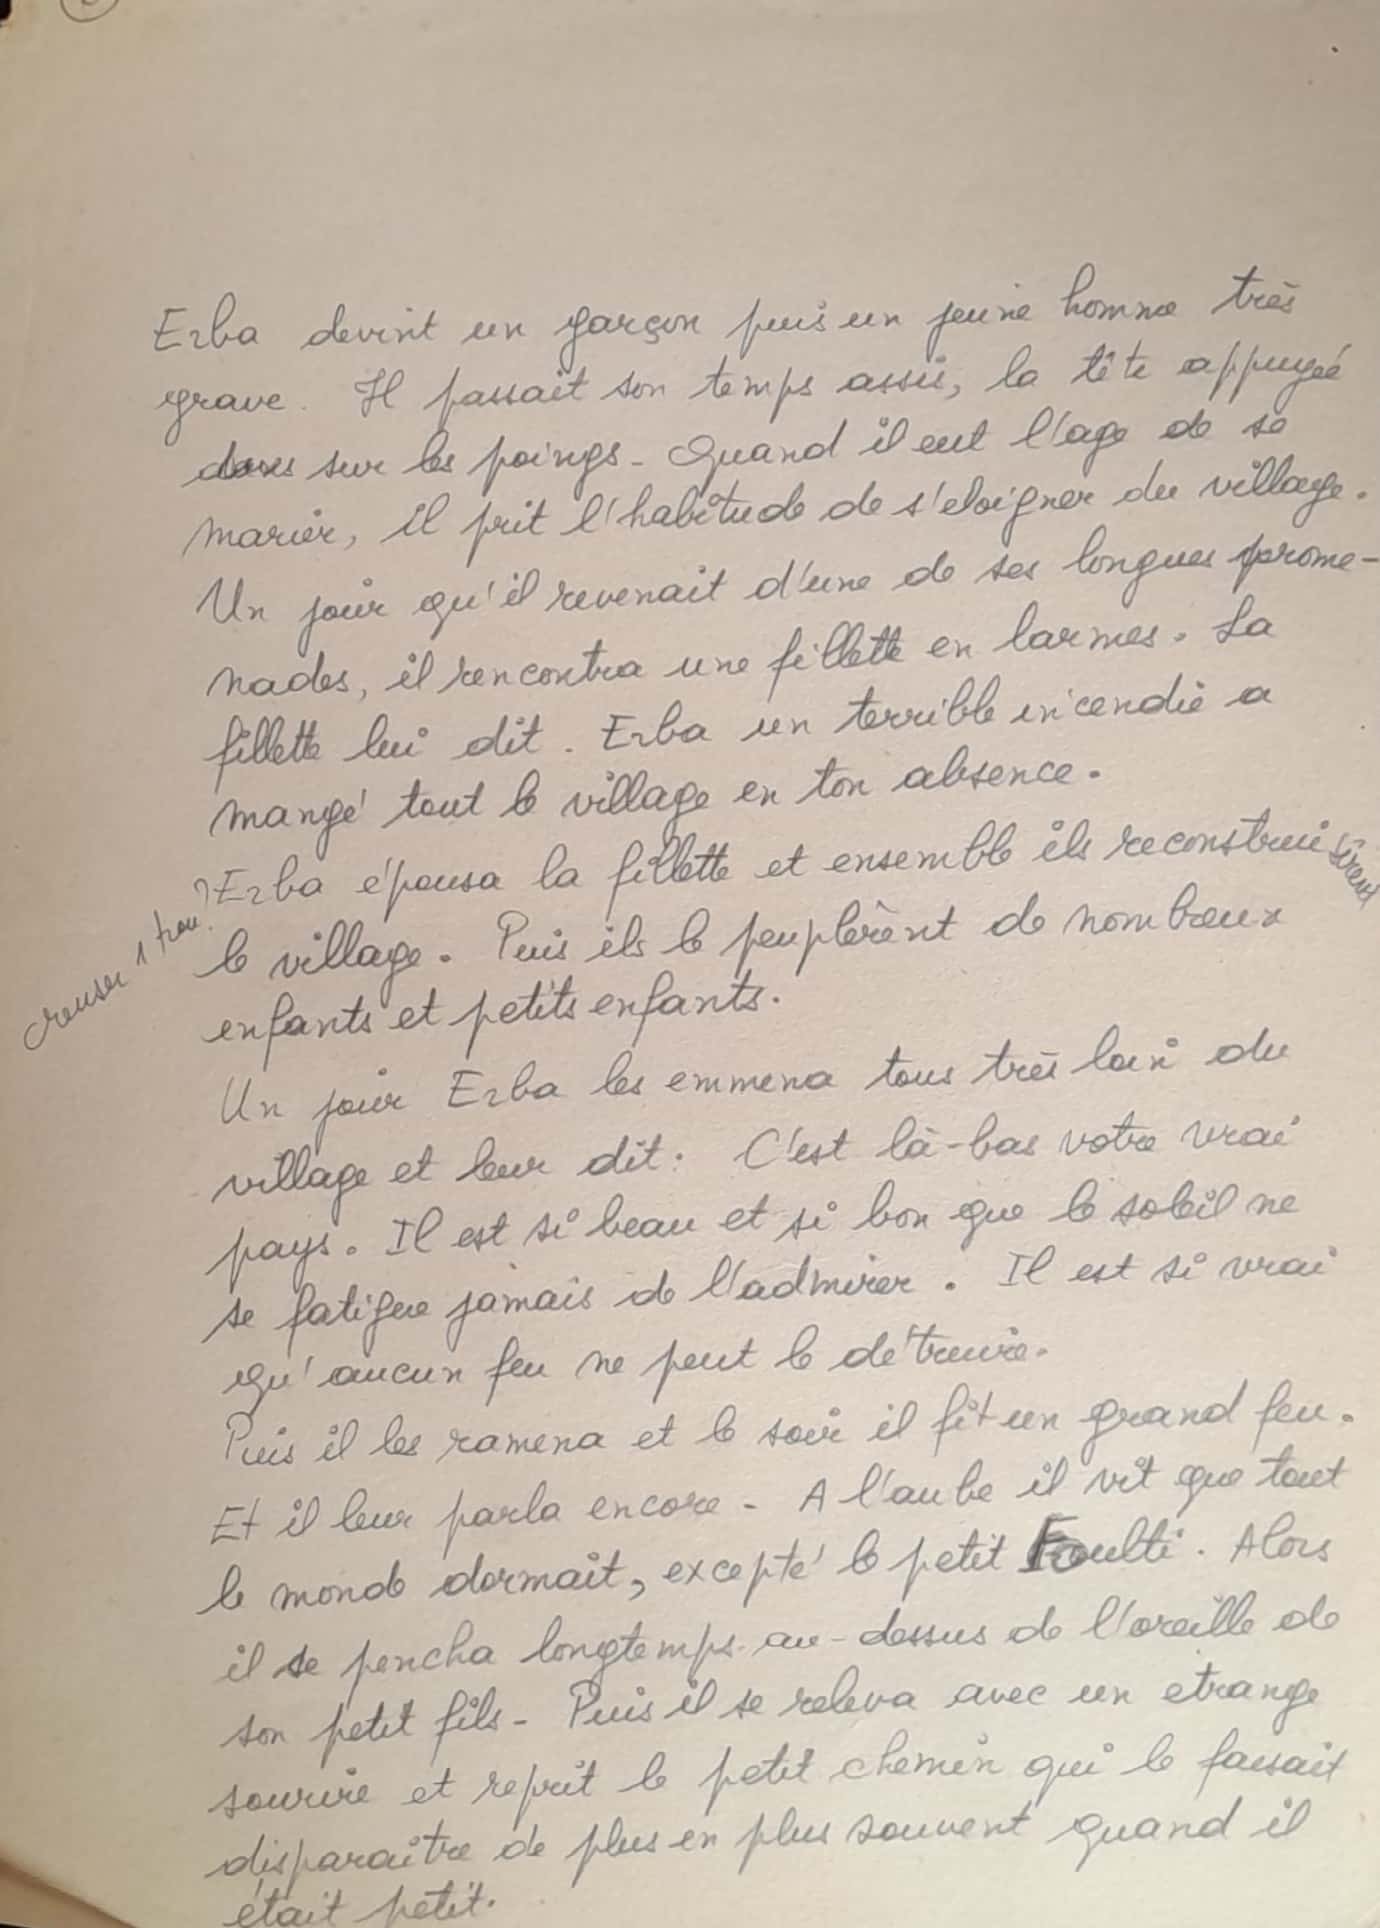 Erba devint un garçon puis un jeune homme très
grave. Il passait son temps assis, la tête appuyée
dans sur les poings - Quand il eut l'age de se
marier, il prit l'habitude de s'eloigner du village.
Un jour qu'il revenait d'une de ses longues prome-
nades, il rencontra une fillette en larmes. La
fillette lui dit. Erba un terrible incendie a
mangé tout le village en ton absence.
Erba épousa la fillette et ensemble ils reconstruisirent
creuser 1 trou?
le village. Puis ils le peuplèrent de nombreux
enfants et petits enfants.
Un jour Erba les emmena tous très loin du
village et leur dit : C'est là-bas votre vrai
pays. Il est si beau et si bon que le soleil ne
se fatigue jamais de l'admirer. Il est si vrai
qu'aucun feu ne peut le détruire.
Puis il les ramena et le soir il fit un grand feu.
Et il leur parla encore - A l'aube il vit que tout
le monde dormait, excepté le petit Foulti. Alors
il se pencha longtemps au-dessus de l'oreille de
son petit fils - Puis il se releva avec un etrange
sourire et reprit le petit chemin qui le faisait
disparaître de plus en plus souvent quand il
était petit.